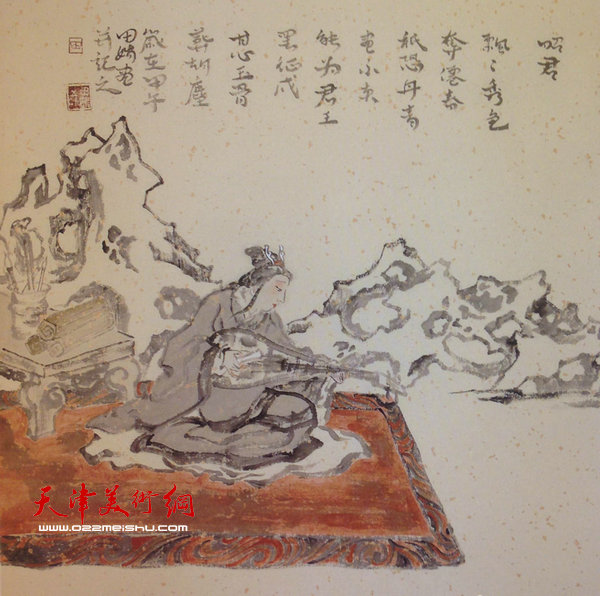 昭君
飄〻秀色
奪僊春
祇恐丹青
畫不真
能为君王
罷征戍
甘心玉骨
葬胡塵
歲在甲午
田
畫
并記之
天津美術網
www.022meishu.com